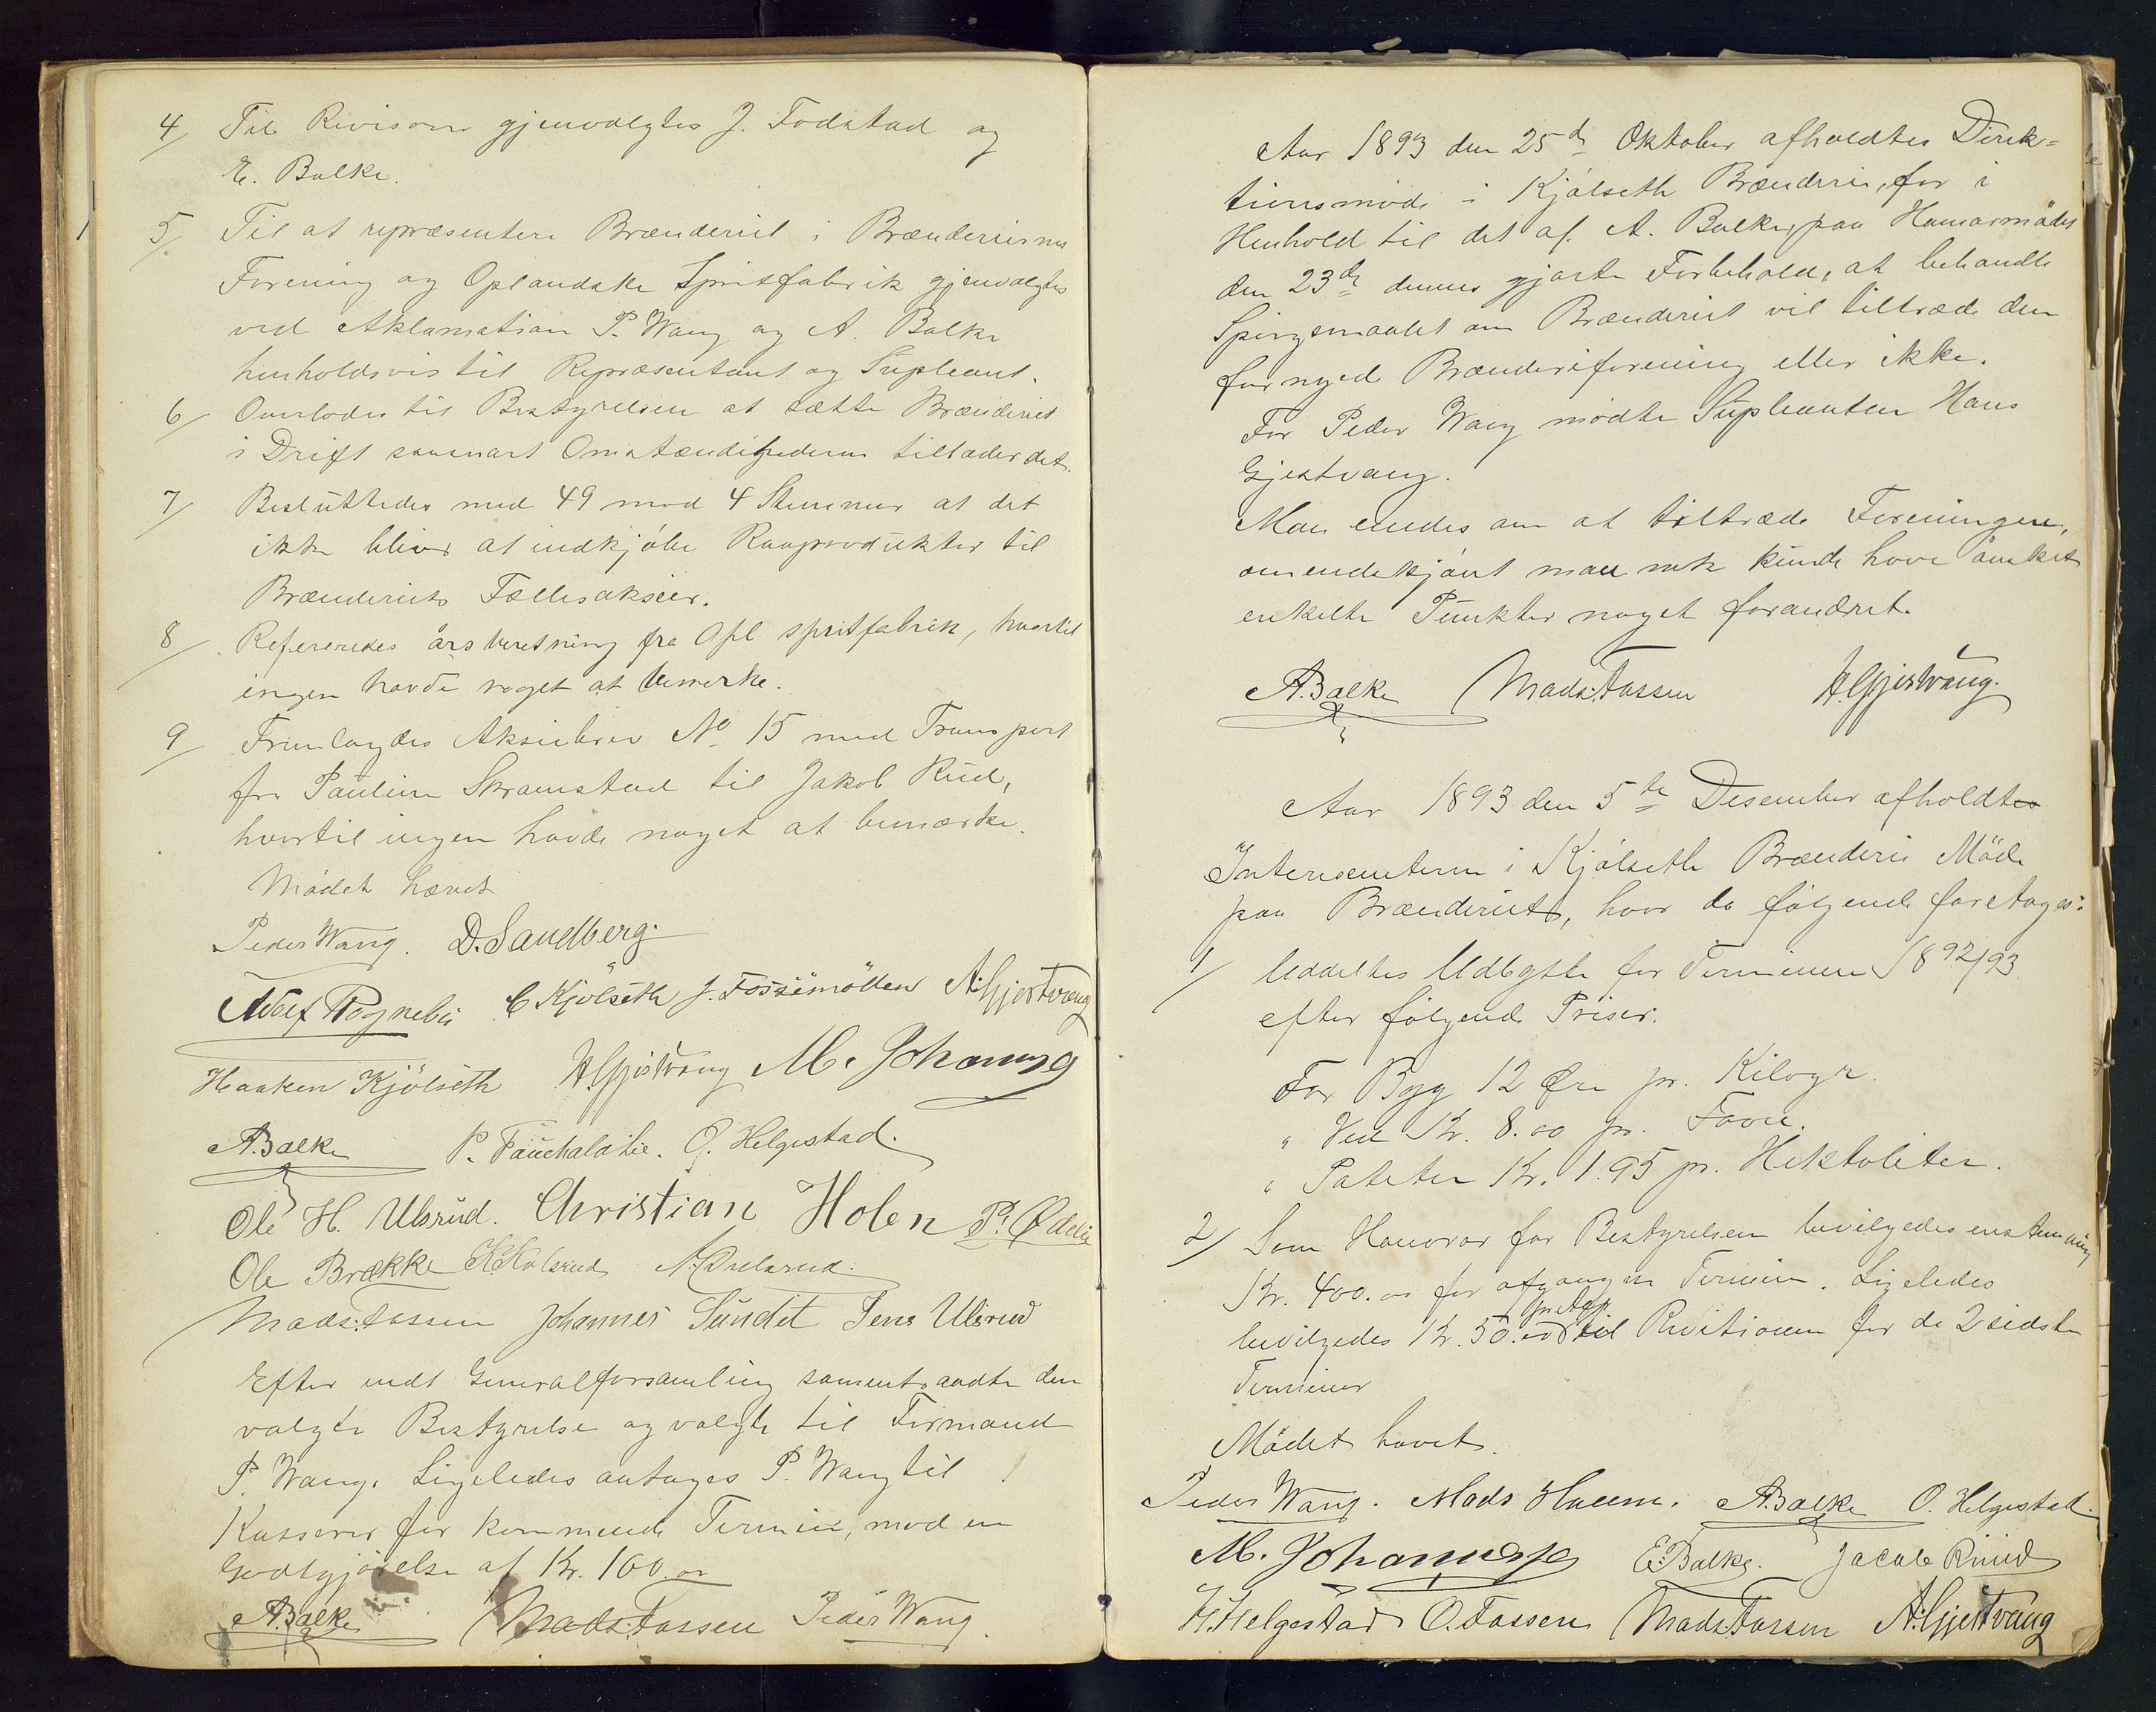 4/ Til Revisorer gjenvalgtes J. Fodstad og
E. Balke.
5/ Til at repræsentere Brænderiet i Brænderiernes
Forening og Oplandske Spritfabrik gjenvalgtes
ved Aklamation P. Wang og A. Balke
henholdsvis til Repræsentant og Supleant.
6/ Overlodes til Bestyrelsen at sætte Brænderiet
i Drift saasnart Omstændighederne tillader det.
7/ Besluttedes med 49 mod 4 Stemmer at det
ikke bliver at indkjøbe Raaprodukter til
Brænderiets Fællesaksier.
8/ Refereredes årsberetning fra Opl spritfabrik, hvortil
ingen havde noget at bemerke.
9/ Fremlagdes Aksiebrev No 15 med Transport
fra Pauline Skramstad til Jakob Rud,
hvortil ingen havde noget at bemærke.
Mödet hævet
Peder Wang. D. Sandberg.
Adolf Rognebÿ C Kjölseth J. Fossemöllen A. Gjestvang
Haaken Kjölseth H. Gjestvang M. Johannes
A. Balke P. Fauchaldlie. O. Helgestad.
Ole H. Ulsrud. Christian Holen P. Ødelie
Ole Brække K. Kolsrud A. Dulsrud.
Mads. Fossen Johannes Sundet Jens Ulsrud
Efter endt Generalforsamling sammentraadte den
valgte Bestyrelse og valgte til Formand
P. Wang. Ligeledes antages P. Wang til
Kasserer for kommende Termin, mod en
Godtgjörelse af Kr. 100.00
A. Balke Mads. Fossen Peder Wang.
Aar 1893 den 25de Oktober afholdtes Direk-
tionsmöde i Kjölseth Brænderie, for i
Henhold til det af A. Balke, paa Hamarmödet
den 23de dennes gjorte Forbehold, at behandle
Spörgsmaalet om Brænderiet vil tiltræde den
fornyede Brænderiforening eller ikke.
For Peder Wang mödte Supleanten Hans
Gjestvang.
Man enedes om at tiltræde Foreningen,
omendskjönt man nok kunde have önsket
enkelte Punkter noget forandret.
A. Balke Mads. Fossen H. Gjestvang.
Aar 1893 den 5te Desember afholdtes
Interesenterne i Kjölseth Brænderie Möde
paa Brænderiet, hvor da fölgende foretages:
1/ Uddeltes Udbytte for Terminen 1892/93
efter fölgende Priser.
For Byg 12 Øre pr. Kilogr.
" Ved Kr. 8.00 pr. Favn.
" Poteter Kr. 1.95 pr. Hektoliter.
2/ Som Honorar for Bestyrelsen bevilgedes enstemmig
Kr. 400.00 for afgangne Termin. Ligeledes
bevilgedes Kr. 50.00 til Revisionen for de 2 sidste
Terminer
Mödet hævet.
Peder Wang. Mads Haem. A. Balke O. Helgestad.
M. Johannes E. Balke. Jacob Ruud
H. Helgestad O. Fossen Mads. Fossen A. Gjestvang